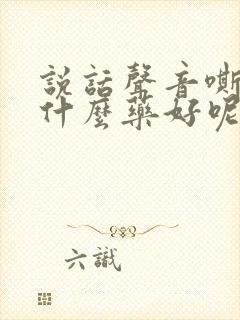 說話聲音嘶
什麼藥好呢
六識